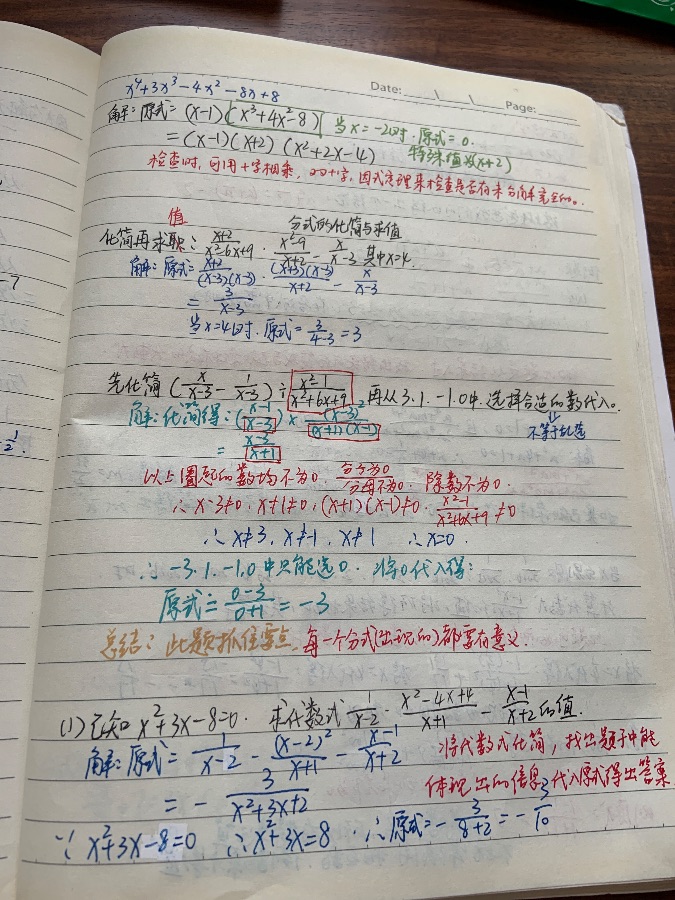 Date: \ \ Page:
x⁴+3x³-4x²-8x+8
解:原式=(x-1)(x³+4x²-8) 当x=-2时.原式=0.
=(x-1)(x+2)(x²+2x-4) 特殊值法(x+2)
检查时,可用十字相乘,双十字,因式定理来检查是否有未分解完全的。
分式的化简与求值
值
化简再求职: \frac{x+2}{x²-6x+9} · \frac{x²-9}{x+2} - \frac{x}{x-3} 其中x=4.
解:原式= \frac{x+2}{(x-3)(x-3)} · \frac{(x+3)(x-3)}{x+2} - \frac{x}{x-3}
= \frac{3}{x-3}
当x=4时.原式= \frac{3}{4-3} =3
先化简( \frac{x}{x-3} - \frac{1}{x-3} )÷ \frac{x²-1}{x²-6x+9} 再从3.1.-1.0中.选择合适的数代入。
解:化简得:( \frac{x-1}{x-3} )× \frac{(x-3)²}{(x+1)(x-1)} 不等于乱选
= \frac{x-3}{x+1}
以上圈起的数均不为0. \frac{分子为0}{分母不为0}. 除数不为0.
∴x-3≠0.x+1≠0.(x+1)(x-1)≠0 \frac{x²-1}{x²-6x+9} ≠0
∴x≠3.x≠-1.x≠1 ∴x=0.
∴-3.1.-1.0中只能选0. 将0代入得:
原式= \frac{0-3}{0+1} =-3
总结:此题抓住要点,每一个分式(出现的)都要有意义.
(1)已知x²+3x-8=0. 求代数式 \frac{1}{x-2} · \frac{x²-4x+4}{x+1} - \frac{x-1}{x+2} 的值.
解:原式= \frac{1}{x-2} - \frac{(x-2)²}{x+1} - \frac{x-1}{x+2} 将代数式化简,找出题子中能
= - \frac{3}{x²+3x+2} 体现出的信息,代入原式得出答案
∵x²+3x-8=0 ∴x²+3x=8. ∴原式=- \frac{3}{8+2} =- \frac{3}{10}
7
\frac{1}{2}.